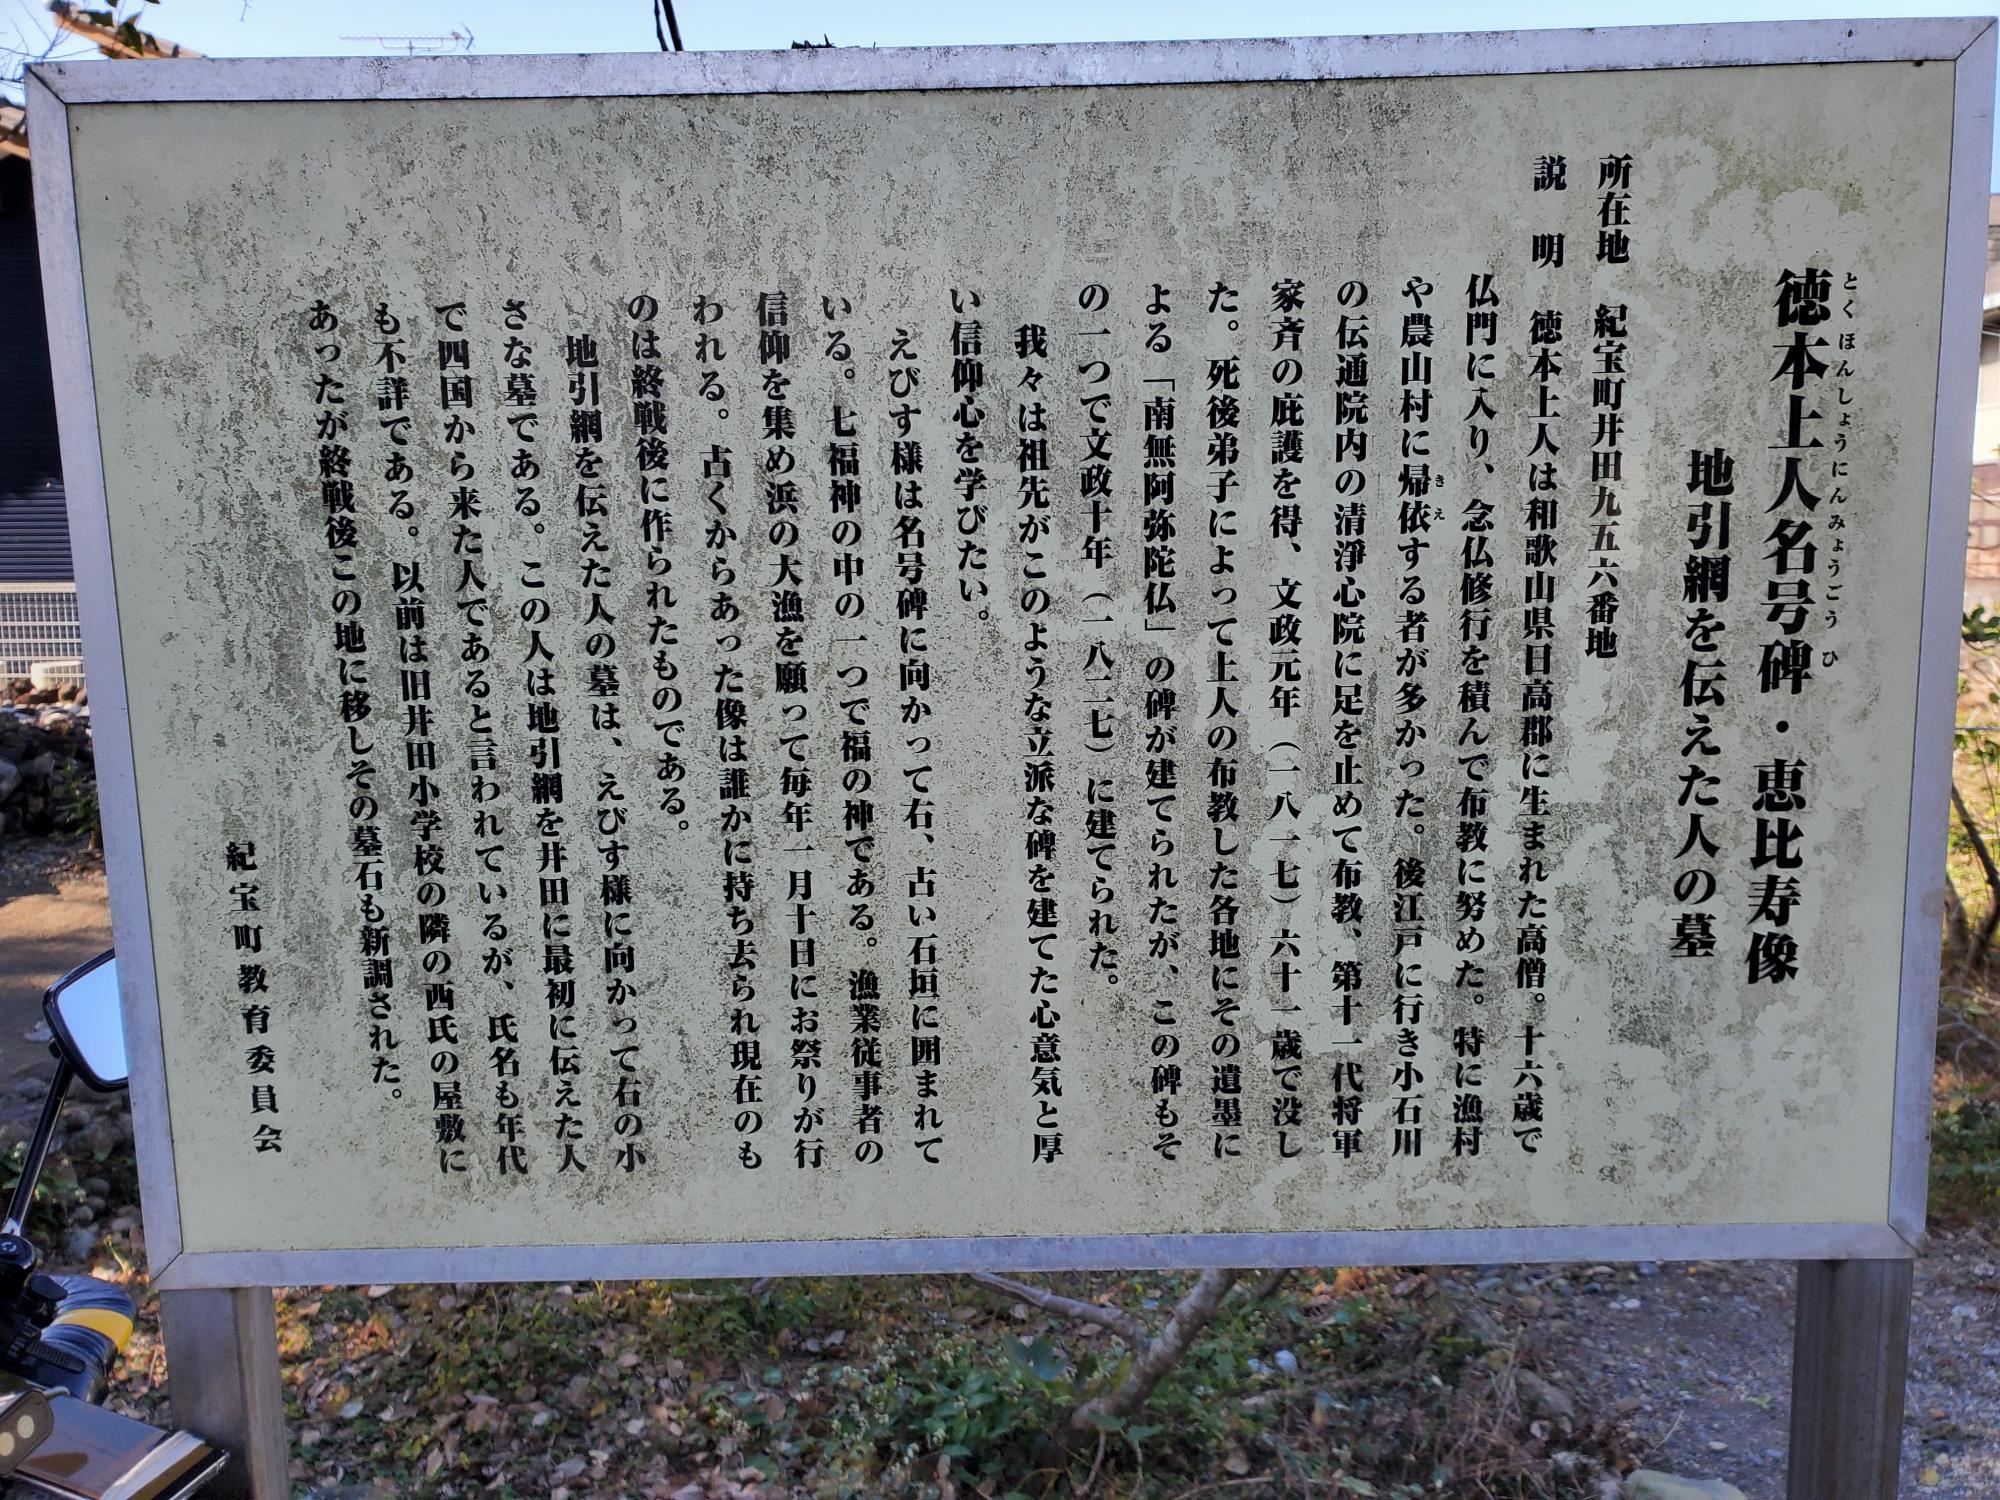 徳本上人名号碑・恵比寿像
とくほんしょうにんみょうごうひ
地引網を伝えた人の墓
所在地　紀宝町井田九五六番地
説　明　徳本上人は和歌山県日高郡に生まれた高僧。十六歳で
仏門に入り、念仏修行を積んで布教に努めた。特に漁村
や農山村に帰依する者が多かった。後江戸に行き小石川
きえ
の伝通院内の清淨心院に足を止めて布教、第十一代将軍
家斉の庇護を得、文政元年（一八一七）六十一歳で没し
た。死後弟子によって上人の布教した各地にその遺墨に
よる「南無阿弥陀仏」の碑が建てられたが、この碑もそ
の一つで文政十年（一八二七）に建てられた。
我々は祖先がこのような立派な碑を建てた心意気と厚
い信仰心を学びたい。
えびす様は名号碑に向かって右、古い石垣に囲まれて
いる。七福神の中の一つで福の神である。漁業従事者の
信仰を集め浜の大漁を願って毎年一月十日にお祭りが行
われる。古くからあった像は誰かに持ち去られ現在のも
のは終戦後に作られたものである。
地引網を伝えた人の墓は、えびす様に向かって右の小
さな墓である。この人は地引網を井田に最初に伝えた人
で四国から来た人であると言われているが、氏名も年代
も不詳である。以前は旧井田小学校の隣の西氏の屋敷に
あったが終戦後この地に移しその墓石も新調された。
紀宝町教育委員会